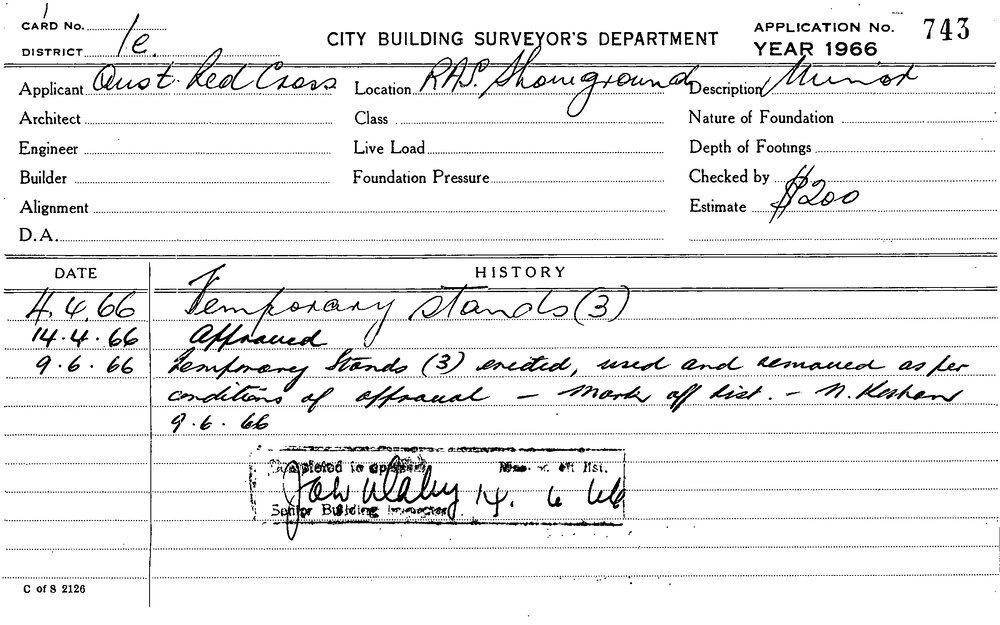 CARD No. 1
DISTRICT 1e.
CITY BUILDING SURVEYOR'S DEPARTMENT
APPLICATION No. 743
YEAR 1966
Applicant Aust. Red Cross Location R.A.S. Showgrounds Description Minor
Architect Class Nature of Foundation
Engineer Live Load Depth of Footings
Builder Foundation Pressure Checked by
Alignment Estimate $200
D.A.
DATE HISTORY
4.4.66 Temporary stands (3)
14.4.66 Approved
9.6.66 Temporary Stands (3) erected, used and removed as per
conditions of approval - Mark off list. - N.
9.6.66
Completed to off list.
14. 6 66
Senior Building Inspector
C of S 2126